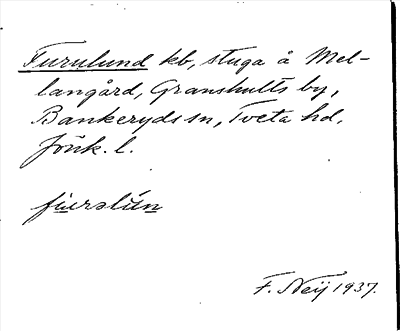 Furulund kb, stuga å Mel-
langård, Granshults by,
Bankeryds sn, Tveta hd,
Jönk. l.
furslún
F. Neij 1937.